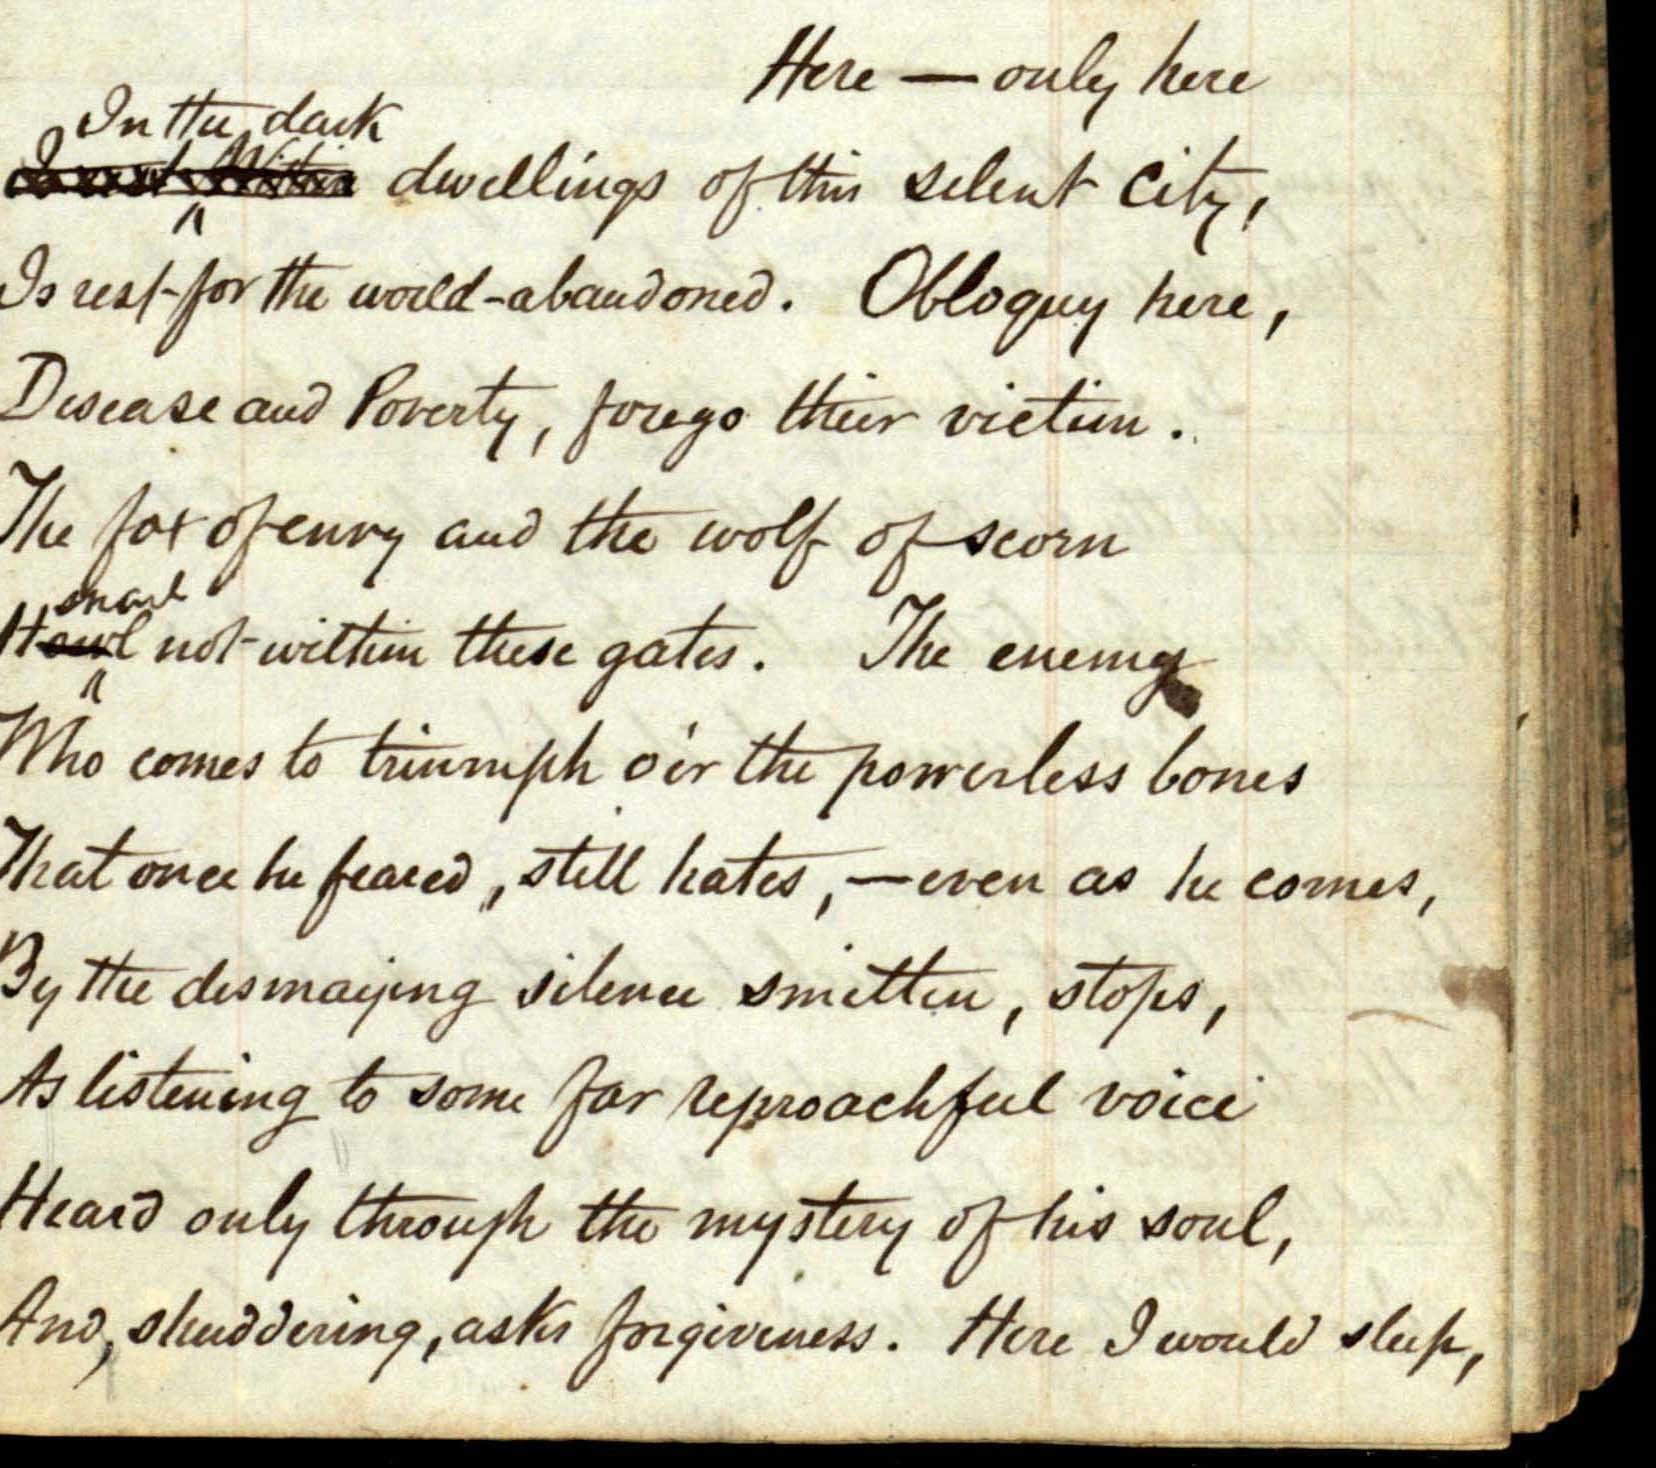 Here — only here
In the dark
dwellings of this silent city,
Is rest for the world-abandoned. Obloquy here,
Disease and Poverty, forego their victim.
The fox of envy and the wolf of scorn
snarl
Howl not within these gates. The enemy
Who comes to triumph o'er the powerless bones
That once he feared, still hates, — even as he comes,
By the dismaying silence smitten, stops,
As listening to some far reproachful voice
Heard only through the mystery of his soul,
And, shuddering, asks forgiveness. Here I would sleep,